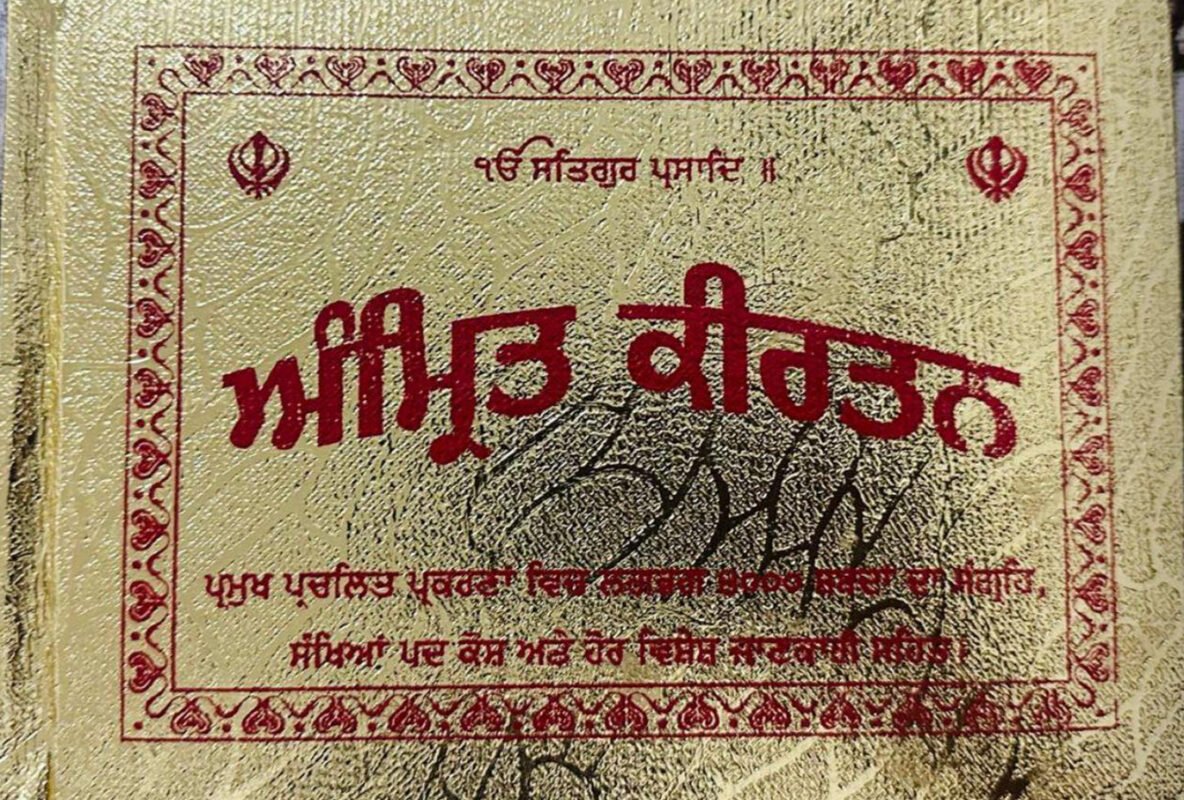 ੴ ਸਤਿਗੁਰ ਪ੍ਰਸਾਦਿ ॥
ਅੰਮ੍ਰਿਤ ਕੀਰਤਨ
ਪ੍ਰਮੁਖ ਪ੍ਰਚਲਿਤ ਪ੍ਰਕਰਣਾਂ ਵਿਚ ਲਗਭਗ ੪੦੦੦ ਸ਼ਬਦਾਂ ਦਾ ਸੰਗ੍ਰਹਿ,
ਸੰਖਿਆਂ ਪਦ ਕੋਸ਼ ਅਤੇ ਹੋਰ ਵਿਸ਼ੇਸ਼ ਜਾਣਕਾਰੀ ਸਹਿਤ।